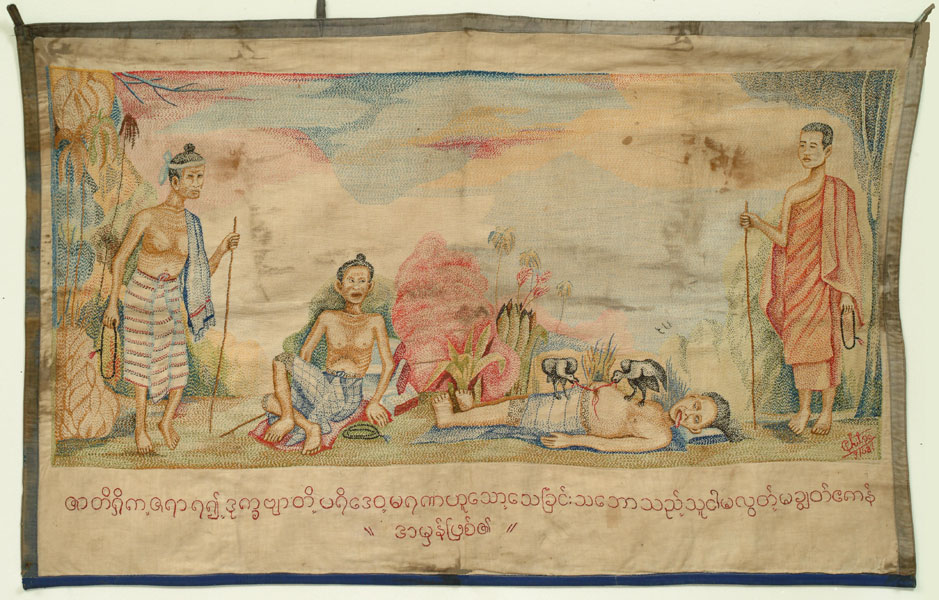 ဇာတိရှိက,ဇရာရ၍ ဒုက္ခဗျာတိ, ပရိဒေဝ, မရဏဟူသော, သေခြင်းသဘောသည်, သူငါမလွတ်, မချွတ်ဧကန်
〃 ဒါမှန်ဖြစ်၏ 〃